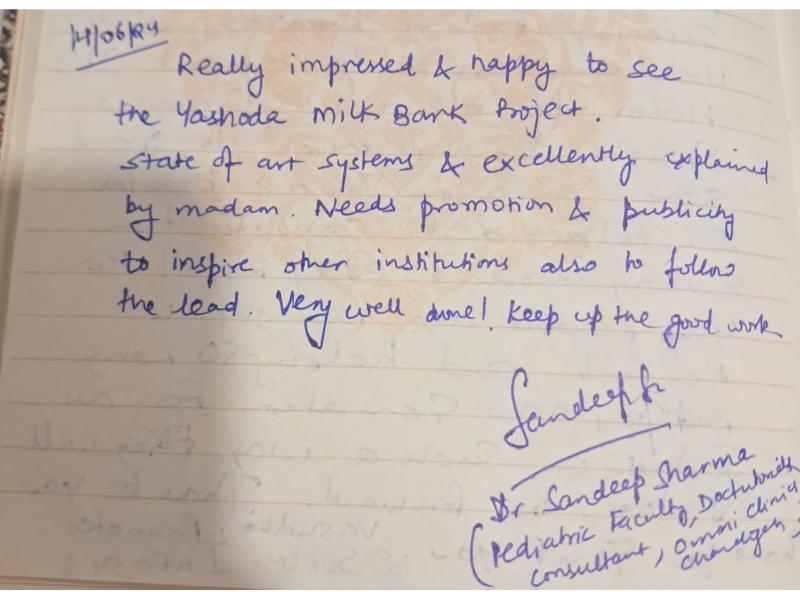 14/06/24
Really impressed & happy to see
the Yashoda Milk Bank Project.
state of art systems & excellently explained
by madam. Needs promotion & publicity
to inspire other institutions also to follow
the lead. Very well done! Keep up the good work
Sandeep
Dr. Sandeep Sharma
(Pediatric Faculty, Doctutorials
consultant, Omni clinic,
Chandigarh